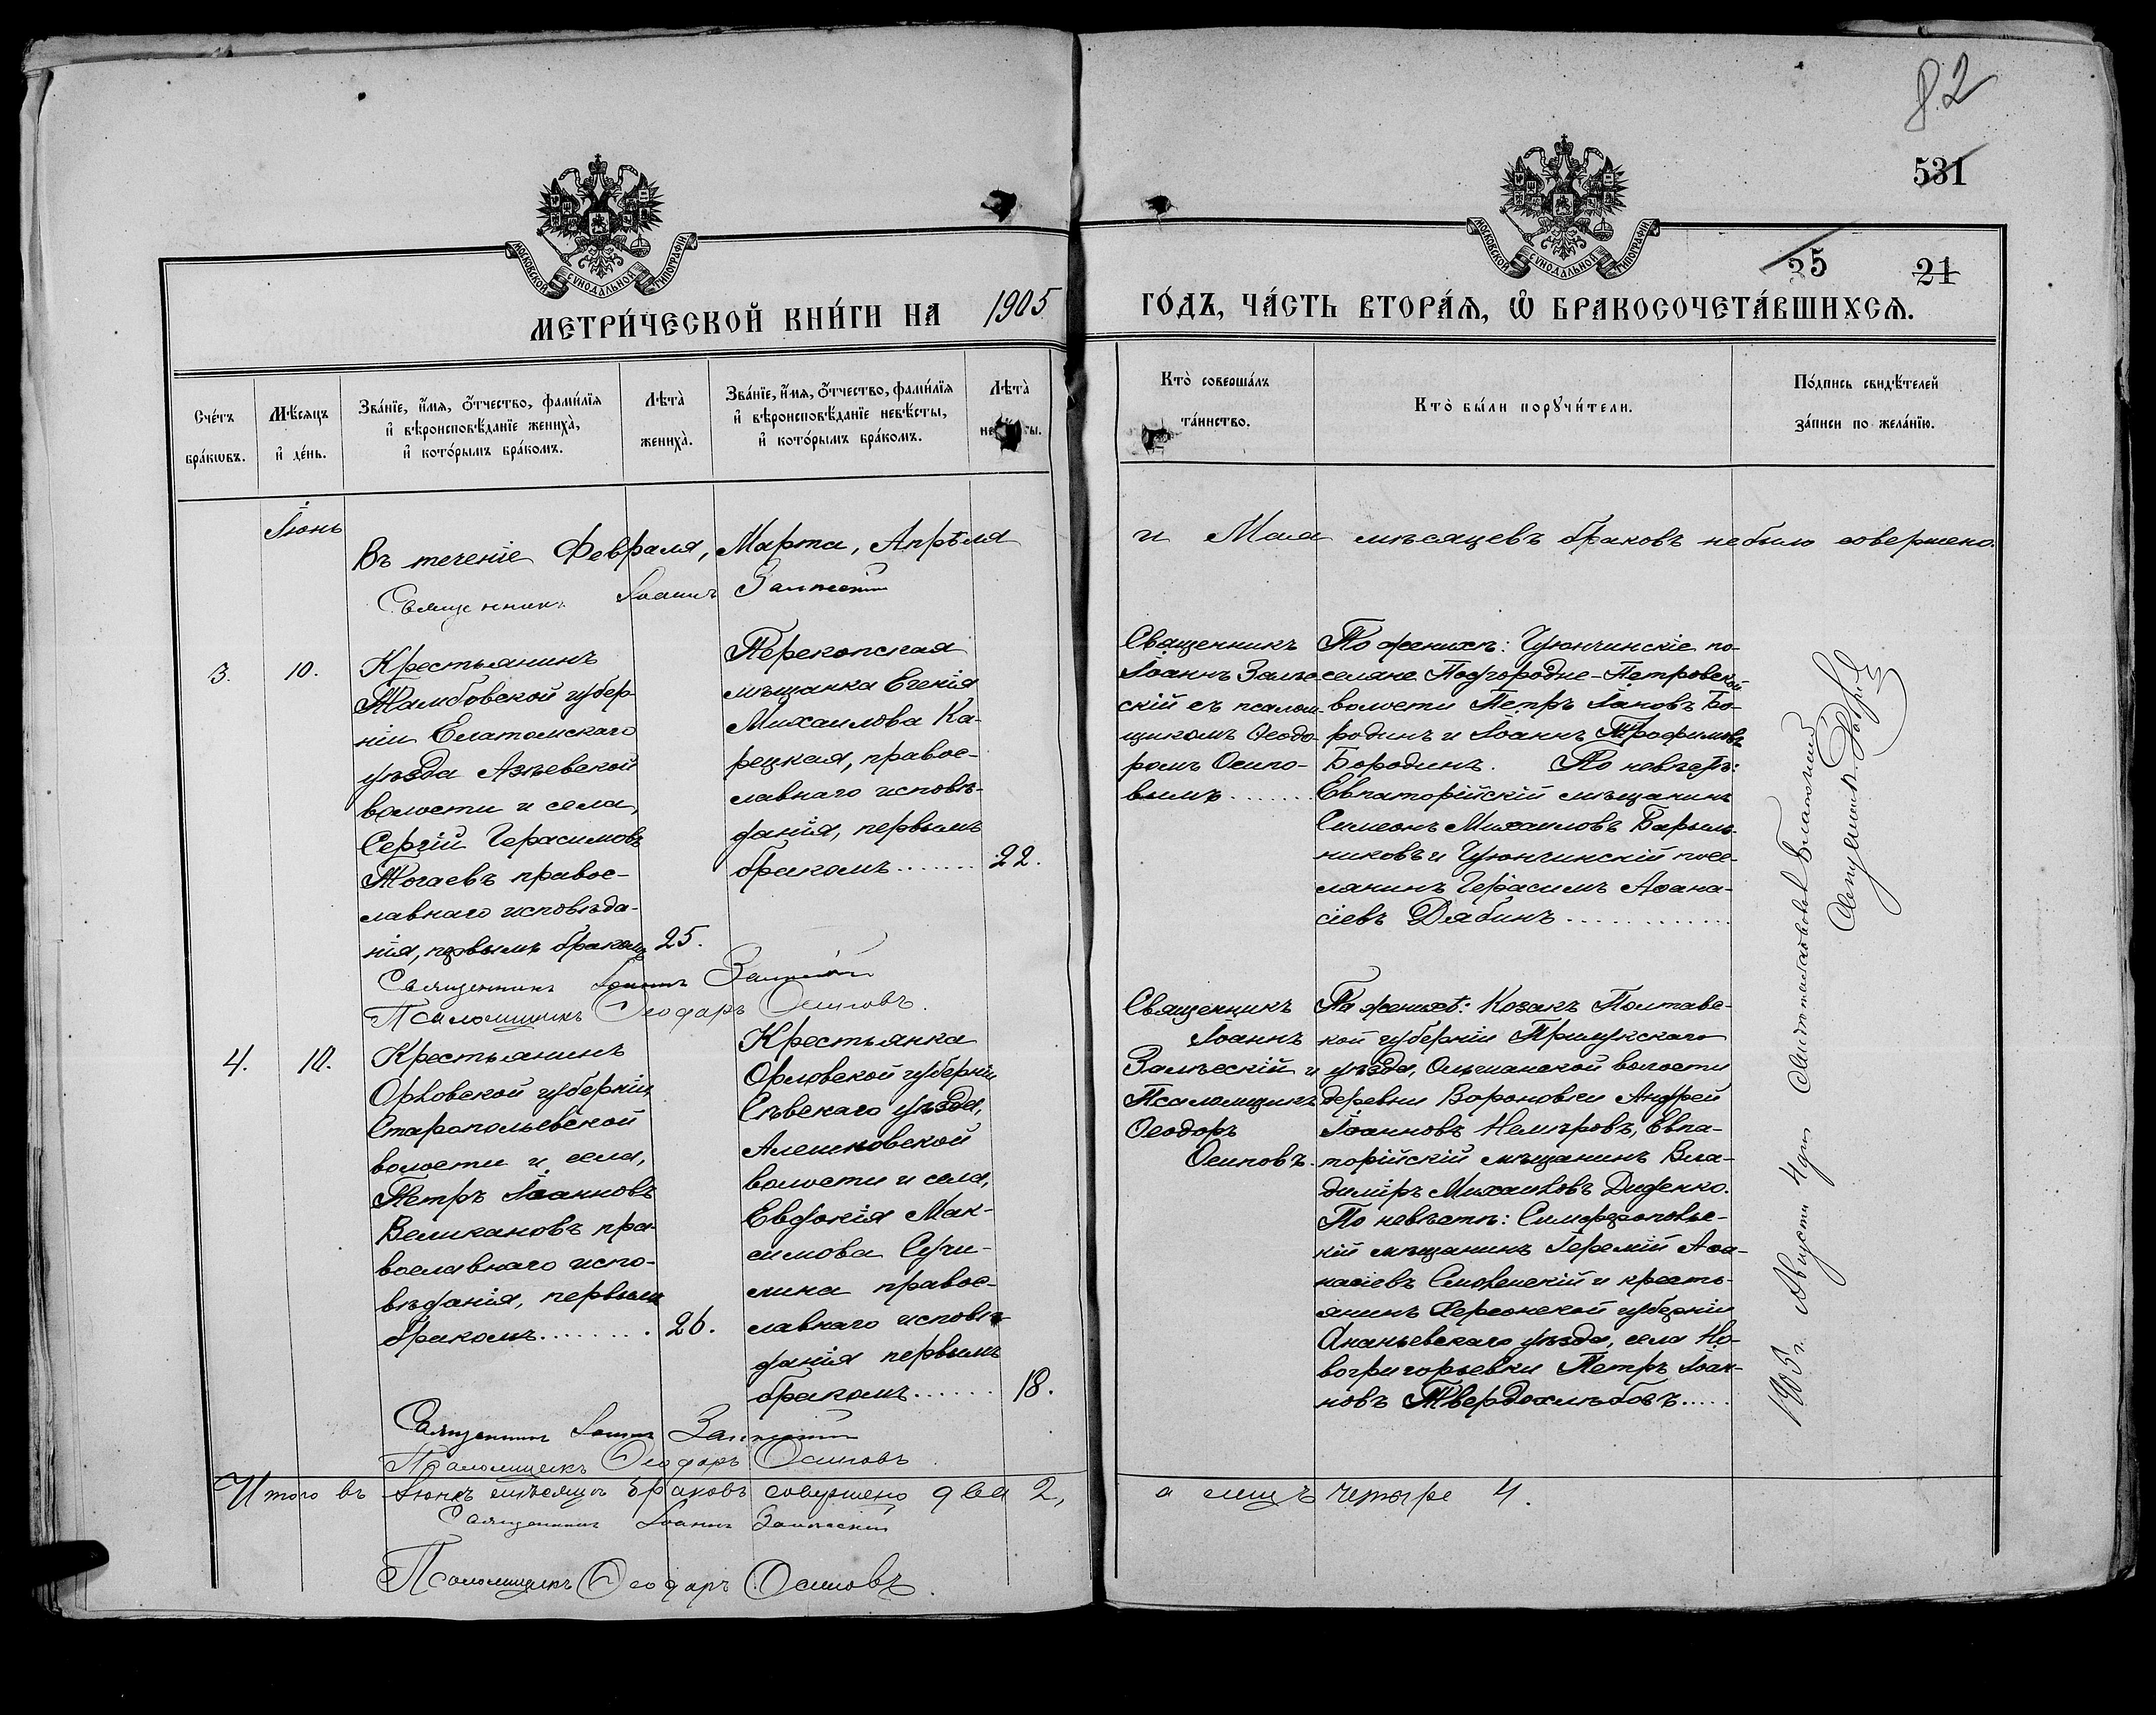 82
531
35
21
МОСКОВСКОЙ СУНОДАЛЬНОЙ ТИПОГРАФІИ
МОСКОВСКОЙ СУНОДАЛЬНОЙ ТИПОГРАФІИ
МЕТРИ́ЧЕСКОЙ КНИ́ГИ НА 1905
ГО́ДЪ, ЧА́СТЬ ВТОРА́Ѧ, Ѡ҆ БРАКОСОЧЕТА́ВШИХСѦ.
Сче́тъ
бра́кѡвъ.
Мѣ́сѧцъ
и҆ де́нь.
Зва́нїе, и҆́мѧ, ѻ҆́тчество, фами́лїѧ
и҆ вѣроисповѣ́данїе жениха̀,
и҆ кото́рымъ бра́комъ.
Лѣта̀
жениха̀.
Зва́нїе, и҆́мѧ, ѻ҆́тчество, фами́лїѧ
и҆ вѣроисповѣ́данїе невѣ́сты,
и҆ кото́рымъ бра́комъ.
Лѣта̀
не ты.
Кто̀ соверша́лъ
та́инство.
Кто̀ бы́ли порꙋчи́тели.
По́дпись свидѣ́телей
за́писи по жела́нїю.
Іюнь
Въ теченіе Февраля, Марта, Апрѣля
и Мая мѣсяцевъ браковъ небыло совершено.
Священникъ Іоаннъ Залѣсскій
3.
10.
Крестьянинъ
Тамбовской губер-
ніи Елатомскаго
уѣзда Азѣевской
волости и села,
Сергій Герасимовъ
Тогаевъ правос-
лавнаго исповѣда-
нія, первымъ бракомъ
25.
Перекопская
мѣщанка Егенія
Михаилова Ка-
рецкая, правос-
лавнаго исповѣ-
данія, первымъ
бракомъ........
22.
Священникъ
Іоаннъ Залѣс
скій съ псалом-
щикомъ Ѳеодо-
ромъ Осипо-
вымъ.......
По женихѣ: Чуюнчинскіе по-
селяне Подгородне-Петровской
волости Петръ Іановъ Бо-
родинъ и Іоаннъ Трофимовъ
Бородинъ. По невѣстѣ:
Евпаторійскій мѣщанинъ
Симеонъ Михаиловъ Барыль-
никовъ и Чуюнчинскій посе-
лянинъ Герасимъ Аѳана-
сіевъ Дябинъ.............
Священникъ Іоаннъ Залѣсскій
Псаломщикъ Ѳеодоръ Осиповъ.
4.
10.
Крестьянинъ
Орловской губерніи,
Старопольевской
волости и села,
Петръ Іоанновъ
Великановъ пра-
вославнаго испо-
вѣданія, первымъ
бракомъ.........
26.
Крестьянка
Орловской губерніи
Сѣвскаго уѣзда,
Алешковской
волости и села,
Евдокія Мак-
симова Сучи-
лина правос-
лавнаго исповѣ-
данія первымъ
бракомъ.......
18.
Священникъ
Іоаннъ
Залѣсскій и
Псаломщикъ
Ѳеодоръ
Осиповъ.
По женихѣ: Козакъ Полтавс-
кой губерніи Прилукскаго
уѣзда, Ольшанской волости
деревни Вороновки Андрей
Іоанновъ Немѣровъ, Евпа-
торійскій мѣщанинъ Вла-
диміръ Михаиловъ Диденко.
По невѣстѣ: Симферопольс-
кій мѣщанинъ Іеремій Аѳа-
насіевъ Смоленскій и кресть-
янинъ Херсонской губерніи
Ананьевскаго уѣзда, села Но-
вогригорьевки Петръ Іоан-
новъ Твердохлѣбовъ.....
Священникъ Іоаннъ Залѣсскій
Псаломщикъ Ѳеодоръ Осиповъ.
Итого въ Іюнѣ мѣсяцѣ браковъ совершено два 2,
а лицъ четыре 4.
Священникъ Іоаннъ Залѣсскій
Псаломщикъ Ѳеодоръ Осиповъ.
1905 г. Августа 4 дня
Священникъ